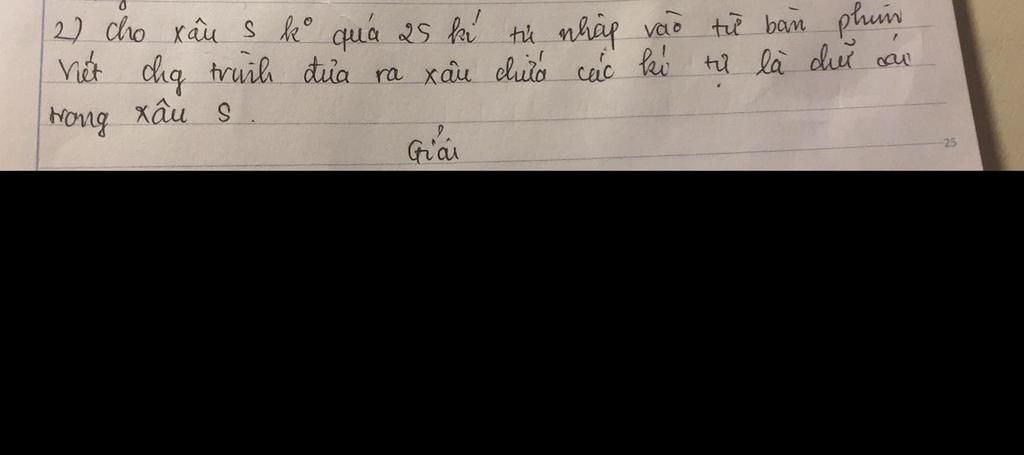 2) cho xâu S k° quá 25 kí tự nhập vào từ bàn phím
Viết chg trình đưa ra xâu chứa các kí tự là chữ cái
trong xâu S.
Giải
25